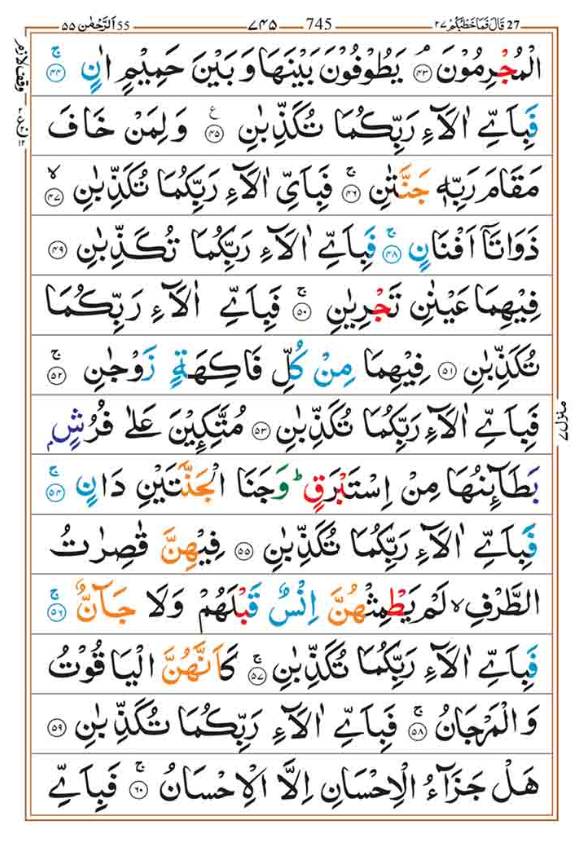 27 قَالَ فَمَا خَطْبُكُمْ ٢٧ 745 ٧٤٥ اَلرَّحْمٰن ٥٥ 55
الْمُجْرِمُوْنَ ۘ ﴿۴۳﴾ يَطُوْفُوْنَ بَيْنَهَا وَ بَيْنَ حَمِيْمٍ اٰنٍ ۚ ﴿۴۴﴾
فَبِاَىِّ اٰلَآءِ رَبِّكُمَا تُكَذِّبٰنِ ﴿۴۵﴾ ع وَ لِمَنْ خَافَ
مَقَامَ رَبِّهٖ جَنَّتٰنِ ۚ ﴿۴۶﴾ فَبِاَىِّ اٰلَآءِ رَبِّكُمَا تُكَذِّبٰنِ ۙ ﴿۴۷﴾
ذَوَاتَاۤ اَفْنَانٍ ۚ ﴿۴۸﴾ فَبِاَىِّ اٰلَآءِ رَبِّكُمَا تُكَذِّبٰنِ ﴿۴۹﴾
فِيْهِمَا عَيْنٰنِ تَجْرِيٰنِ ۚ ﴿۵۰﴾ فَبِاَىِّ اٰلَآءِ رَبِّكُمَا
تُكَذِّبٰنِ ﴿۵۱﴾ فِيْهِمَا مِنْ كُلِّ فَاكِهَةٍ زَوْجٰنِ ۚ ﴿۵۲﴾
فَبِاَىِّ اٰلَآءِ رَبِّكُمَا تُكَذِّبٰنِ ﴿۵۳﴾ مُتَّكِـِٕيْنَ عَلٰى فُرُشٍۭ
بَطَآئِنُهَا مِنْ اِسْتَبْرَقٍ ؕ وَ جَنَا الْجَنَّتَيْنِ دَانٍ ۚ ﴿۵۴﴾
فَبِاَىِّ اٰلَآءِ رَبِّكُمَا تُكَذِّبٰنِ ﴿۵۵﴾ فِيْهِنَّ قٰصِرٰتُ
الطَّرْفِ ۙ لَمْ يَطْمِثْهُنَّ اِنْسٌ قَبْلَهُمْ وَلَا جَآنٌّ ۚ ﴿۵۶﴾
فَبِاَىِّ اٰلَآءِ رَبِّكُمَا تُكَذِّبٰنِ ۚ ﴿۵۷﴾ كَاَنَّهُنَّ الْيَاقُوْتُ
وَ الْمَرْجَانُ ۚ ﴿۵۸﴾ فَبِاَىِّ اٰلَآءِ رَبِّكُمَا تُكَذِّبٰنِ ﴿۵۹﴾
هَلْ جَزَآءُ الْاِحْسَانِ اِلَّا الْاِحْسَانُ ۚ ﴿۶۰﴾ فَبِاَىِّ
وقف لازم
منزل ٧